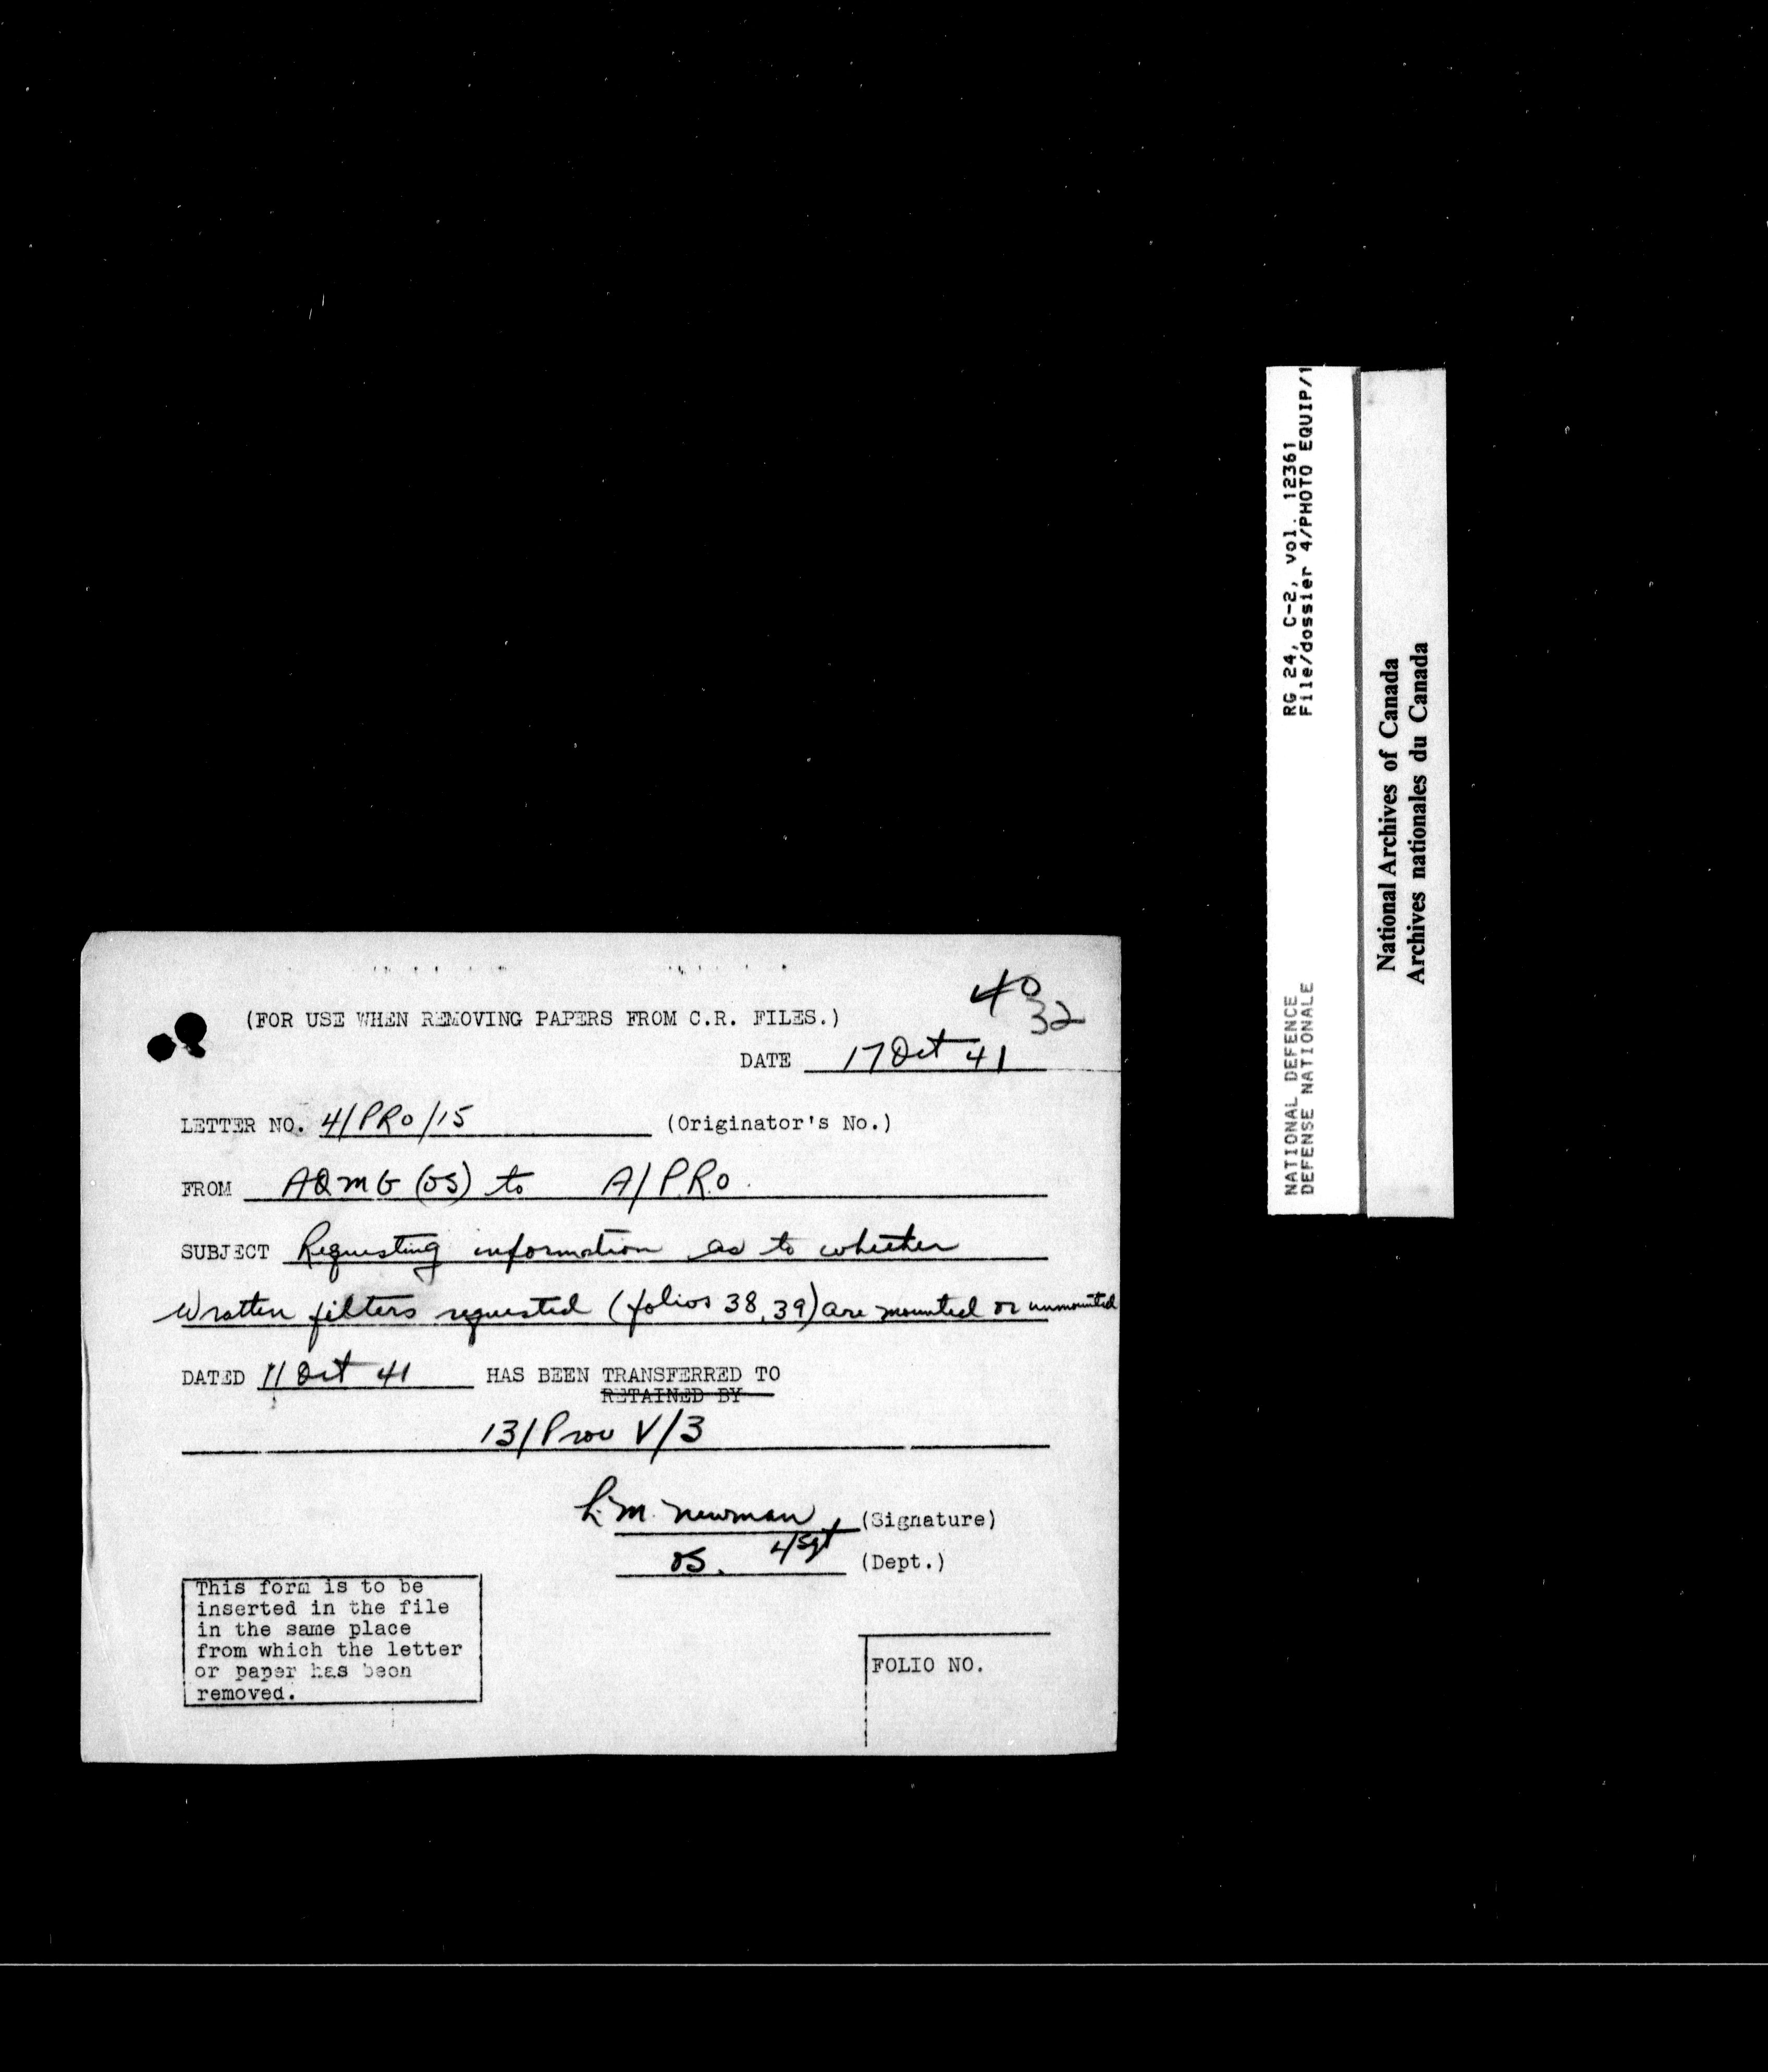 40
32
(FOR USE WHEN REMOVING PAPERS FROM C.R. FILES.)
DATE 17 Oct 41
LETTER NO. 4/PRO/15 (Originator's No.)
FROM AQMG (OS) to A/P.R.O.
SUBJECT Requesting information as to whether
Wratten filters requested (folios 38, 39) are mounted or unmounted
DATED 11 Oct 41 HAS BEEN TRANSFERRED TO
RETAINED BY
13/Prov V/3
L.M. Newman (Signature)
OS. (Dept.)
This form is to be
inserted in the file
in the same place
from which the letter
or paper has been
removed.
FOLIO NO.
RG 24, C-2, vol. 12361
File/dossier 4/PHOTO EQUIP/1
NATIONAL DEFENCE
DEFENSE NATIONALE
National Archives of Canada
Archives nationales du Canada